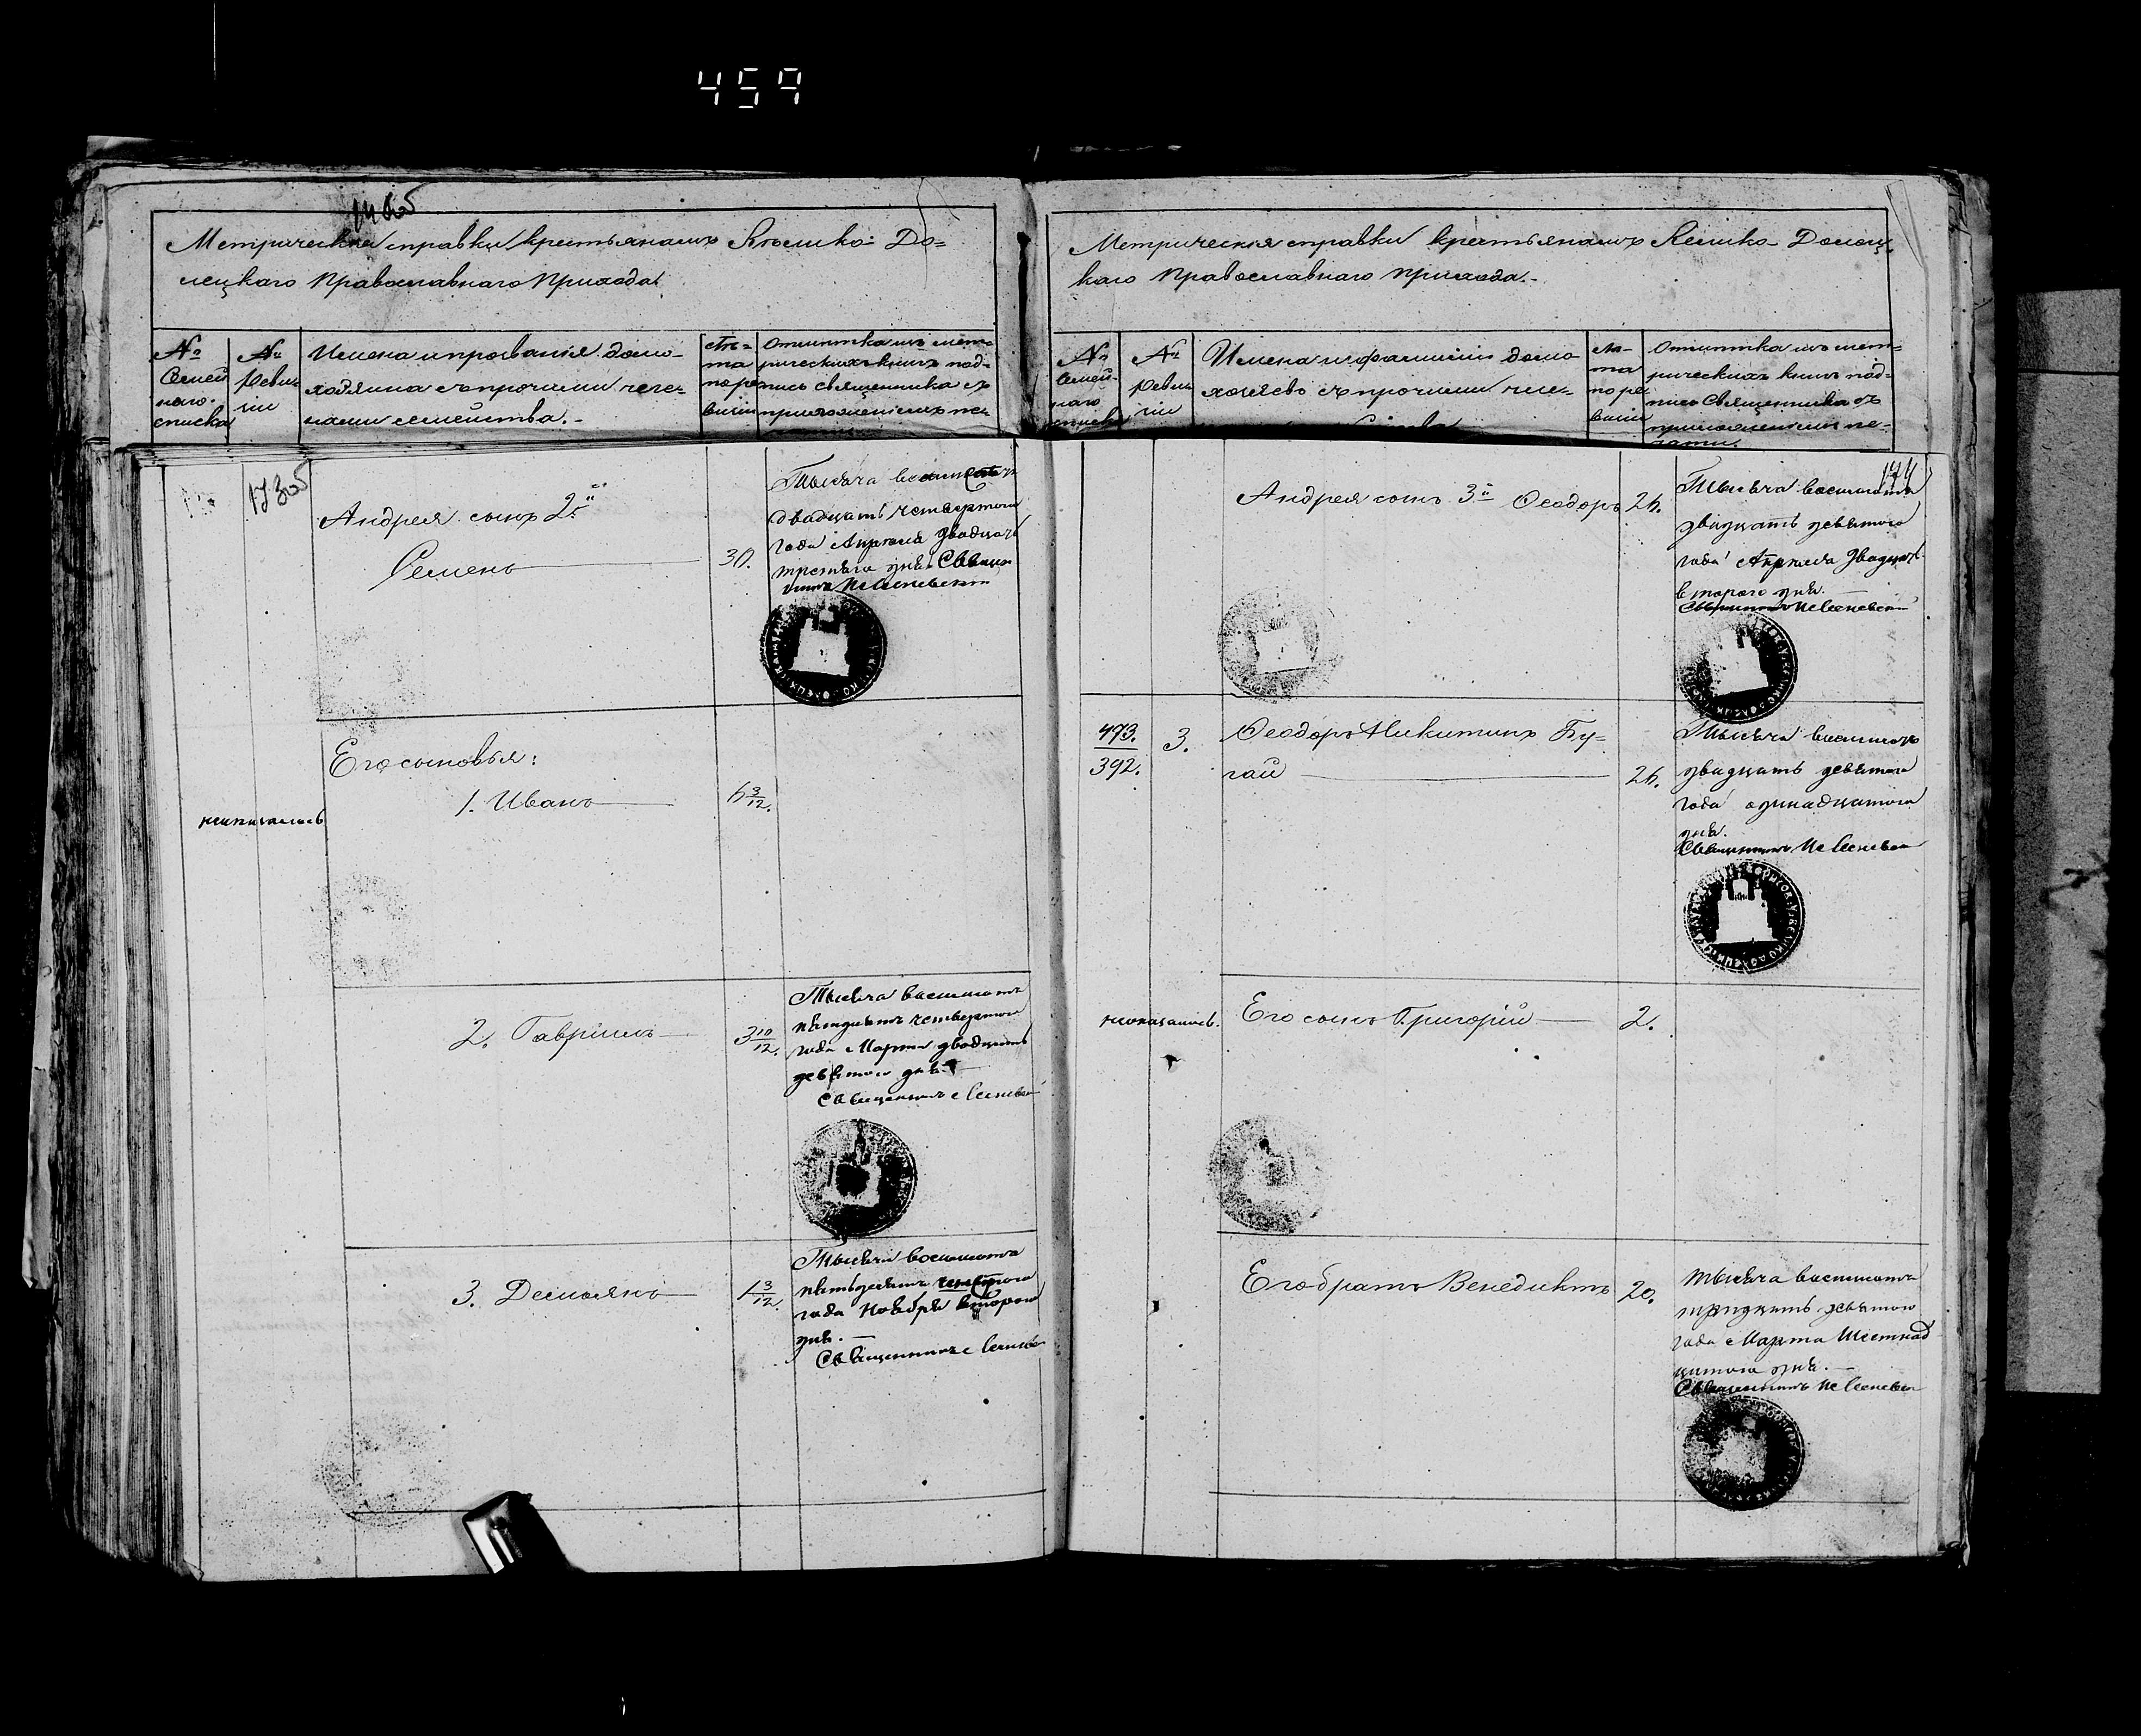 459
Метрическія справки крестьянамъ Велико-До=
лецкаго Православнаго Прихода.
№
Семей
наго
списка
№
Реви
зіи
Имена и прозванія домо-
хозяина съ прочими чле-
нами семейства.-
лѣ=
та
по ре
визіи
Отмѣтка изъ мет=
рическихъ книгъ под=
пись священника съ
приложеніемъ пе-
173об
Андрея сынъ 2й
Семенъ
30.
Тысяча восемсотъ
двадцать четвертого
года Апрѣля двадцать
третяго дня. Священ
никъ
Его сыновья:
непоказалось
1. Иванъ
6 3/12.
2. Гавріилъ
3 10/12.
Тысяча восемсотъ
пятдесятъ четвертого
года Марта двадцать
девятого дня
Священникъ
3. Демьянъ
1 3/12.
Тысяча восемсотъ
пятьдесятъ
года Ноября второго
дня.
Священникъ
Метрическія справки крестьянамъ Велико-Долец
каго Православнаго прихода.-
№
Семей-
наго
списка
№
Реви
зіи
Имена и фамиліи домо
хозяевъ съ прочими чле=
лѣ-
та
по ре
визіи
Отмѣтка изъ мет=
рическихъ книгъ под=
пись Священника съ
приложеніемъ пе-
чати.
174
Андрея сынъ 3й Ѳеодоръ
26.
Тысяча восемсотъ
двадцать девятого
года Апрѣля двадцать
второго дня.
Священникъ
473.
392.
3.
Ѳеодоръ Никитинъ Бу=
гай
26.
Тысяча восемсотъ
двадцать девятого
года одинадцатого
дня.
Священникъ
непоказалось.
Его сынъ Григорій
2.
Его братъ Венедиктъ
20.
Тысяча восемсотъ
тридцать девятого
года Марта Шестнад
цатого дня.
Священникъ